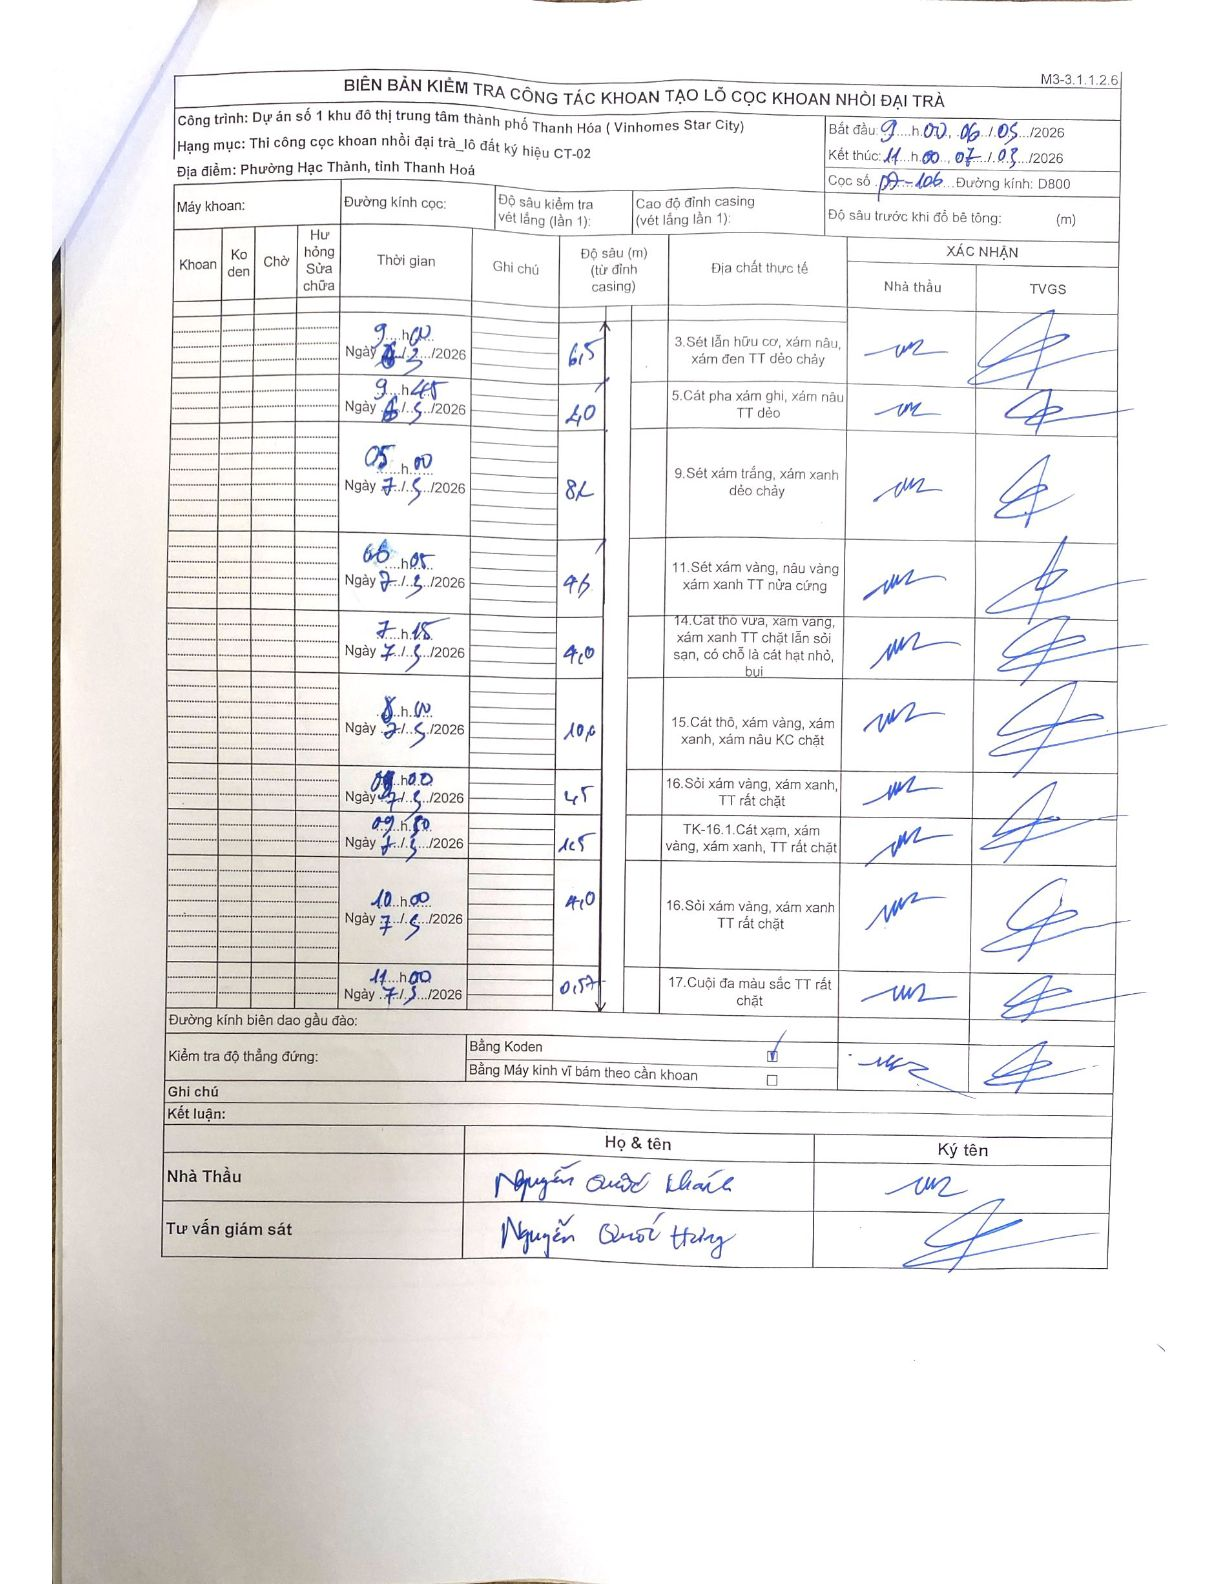 M3-3.1.1.2.6
BIÊN BẢN KIỂM TRA CÔNG TÁC KHOAN TẠO LỖ CỌC KHOAN NHỒI ĐẠI TRÀ
Công trình: Dự án số 1 khu đô thị trung tâm thành phố Thanh Hóa ( Vinhomes Star City)
Hạng mục: Thi công cọc khoan nhồi đại trà_lô đất ký hiệu CT-02
Địa điểm: Phường Hạc Thành, tỉnh Thanh Hoá
Bắt đầu: 9...h.00, 06../.03.../2026
Kết thúc: 11...h.00..., 07../.03.../2026
Cọc số ...-106...Đường kính: D800
Máy khoan:
Đường kính cọc:
Độ sâu kiểm tra
vét lắng (lần 1):
Cao độ đỉnh casing
(vét lắng lần 1):
Độ sâu trước khi đổ bê tông: (m)
Khoan
Ko
den
Chờ
Hư
hỏng
Sửa
chữa
Thời gian
Ghi chú
Độ sâu (m)
(từ đỉnh
casing)
Địa chất thực tế
XÁC NHẬN
Nhà thầu
TVGS
9...h00
Ngày 6./.3.../2026
6,5
3.Sét lẫn hữu cơ, xám nâu,
xám đen TT dẻo chảy
9...h45
Ngày 6./.3.../2026
5.Cát pha xám ghi, xám nâu
TT dẻo
05...h.00
Ngày 7../.3.../2026
9.Sét xám trắng, xám xanh
dẻo chảy
06...h05
Ngày 7../.3.../2026
11.Sét xám vàng, nâu vàng
xám xanh TT nửa cứng
7...h.15
Ngày 7../.3.../2026
4,0
14.Cát thô vừa, xám vàng,
xám xanh TT chặt lẫn sỏi
sạn, có chỗ là cát hạt nhỏ,
bụi
8...h.00
Ngày 7../.3.../2026
15.Cát thô, xám vàng, xám
xanh, xám nâu KC chặt
09...h00
Ngày 7../.3.../2026
16.Sỏi xám vàng, xám xanh,
TT rất chặt
09...h.30
Ngày 7../.3.../2026
1,5
TK-16.1.Cát xạm, xám
vàng, xám xanh, TT rất chặt
10...h.00
Ngày 7../.3.../2026
4,0
16.Sỏi xám vàng, xám xanh
TT rất chặt
11...h00
Ngày 7../.3.../2026
0,57
17.Cuội đa màu sắc TT rất
chặt
Đường kính biên dao gầu đào:
Kiểm tra độ thẳng đứng:
Bằng Koden
Bằng Máy kinh vĩ bám theo cần khoan
Ghi chú
Kết luận:
Họ & tên
Ký tên
Nhà Thầu
Nguyễn Quốc Khánh
Tư vấn giám sát
Nguyễn Quốc Hưng